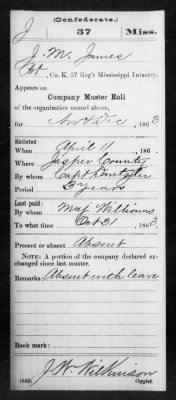 (Confederate.)
J 37 Miss.
J. M. James
Pvt, Co. K, 37 Reg't Mississippi Infantry.
Appears on
Company Muster Roll
of the organization named above,
for Nov & Dec, 1863.
Enlisted:
When April 11, 186 .
Where Jasper County
By whom Capt Dantzler
Period 3 years
Last paid:
By whom Maj Williams
To what time Oct 31, 1863.
Present or absent Absent
NOTE: A portion of the company declared ex-
changed since last muster.
Remarks: Absent with leave
Book mark:
J. W. Wilkinson
(642) Copyist.